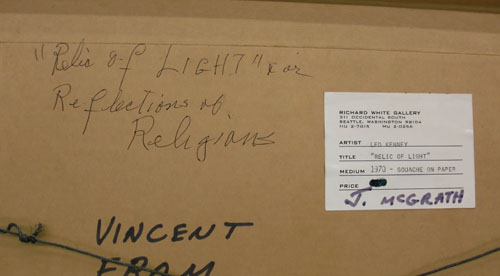 "Relic of LIGHT" or
Reflections of
Religions
RICHARD WHITE GALLERY
311 OCCIDENTAL SOUTH
SEATTLE, WASHINGTON 98104
MU 2-7015 MU 2-0256
ARTIST LEO KENNEY
TITLE "RELIC OF LIGHT"
MEDIUM 1970 - GOUACHE ON PAPER
PRICE
J. MCGRATH
VINCENT
FRAM